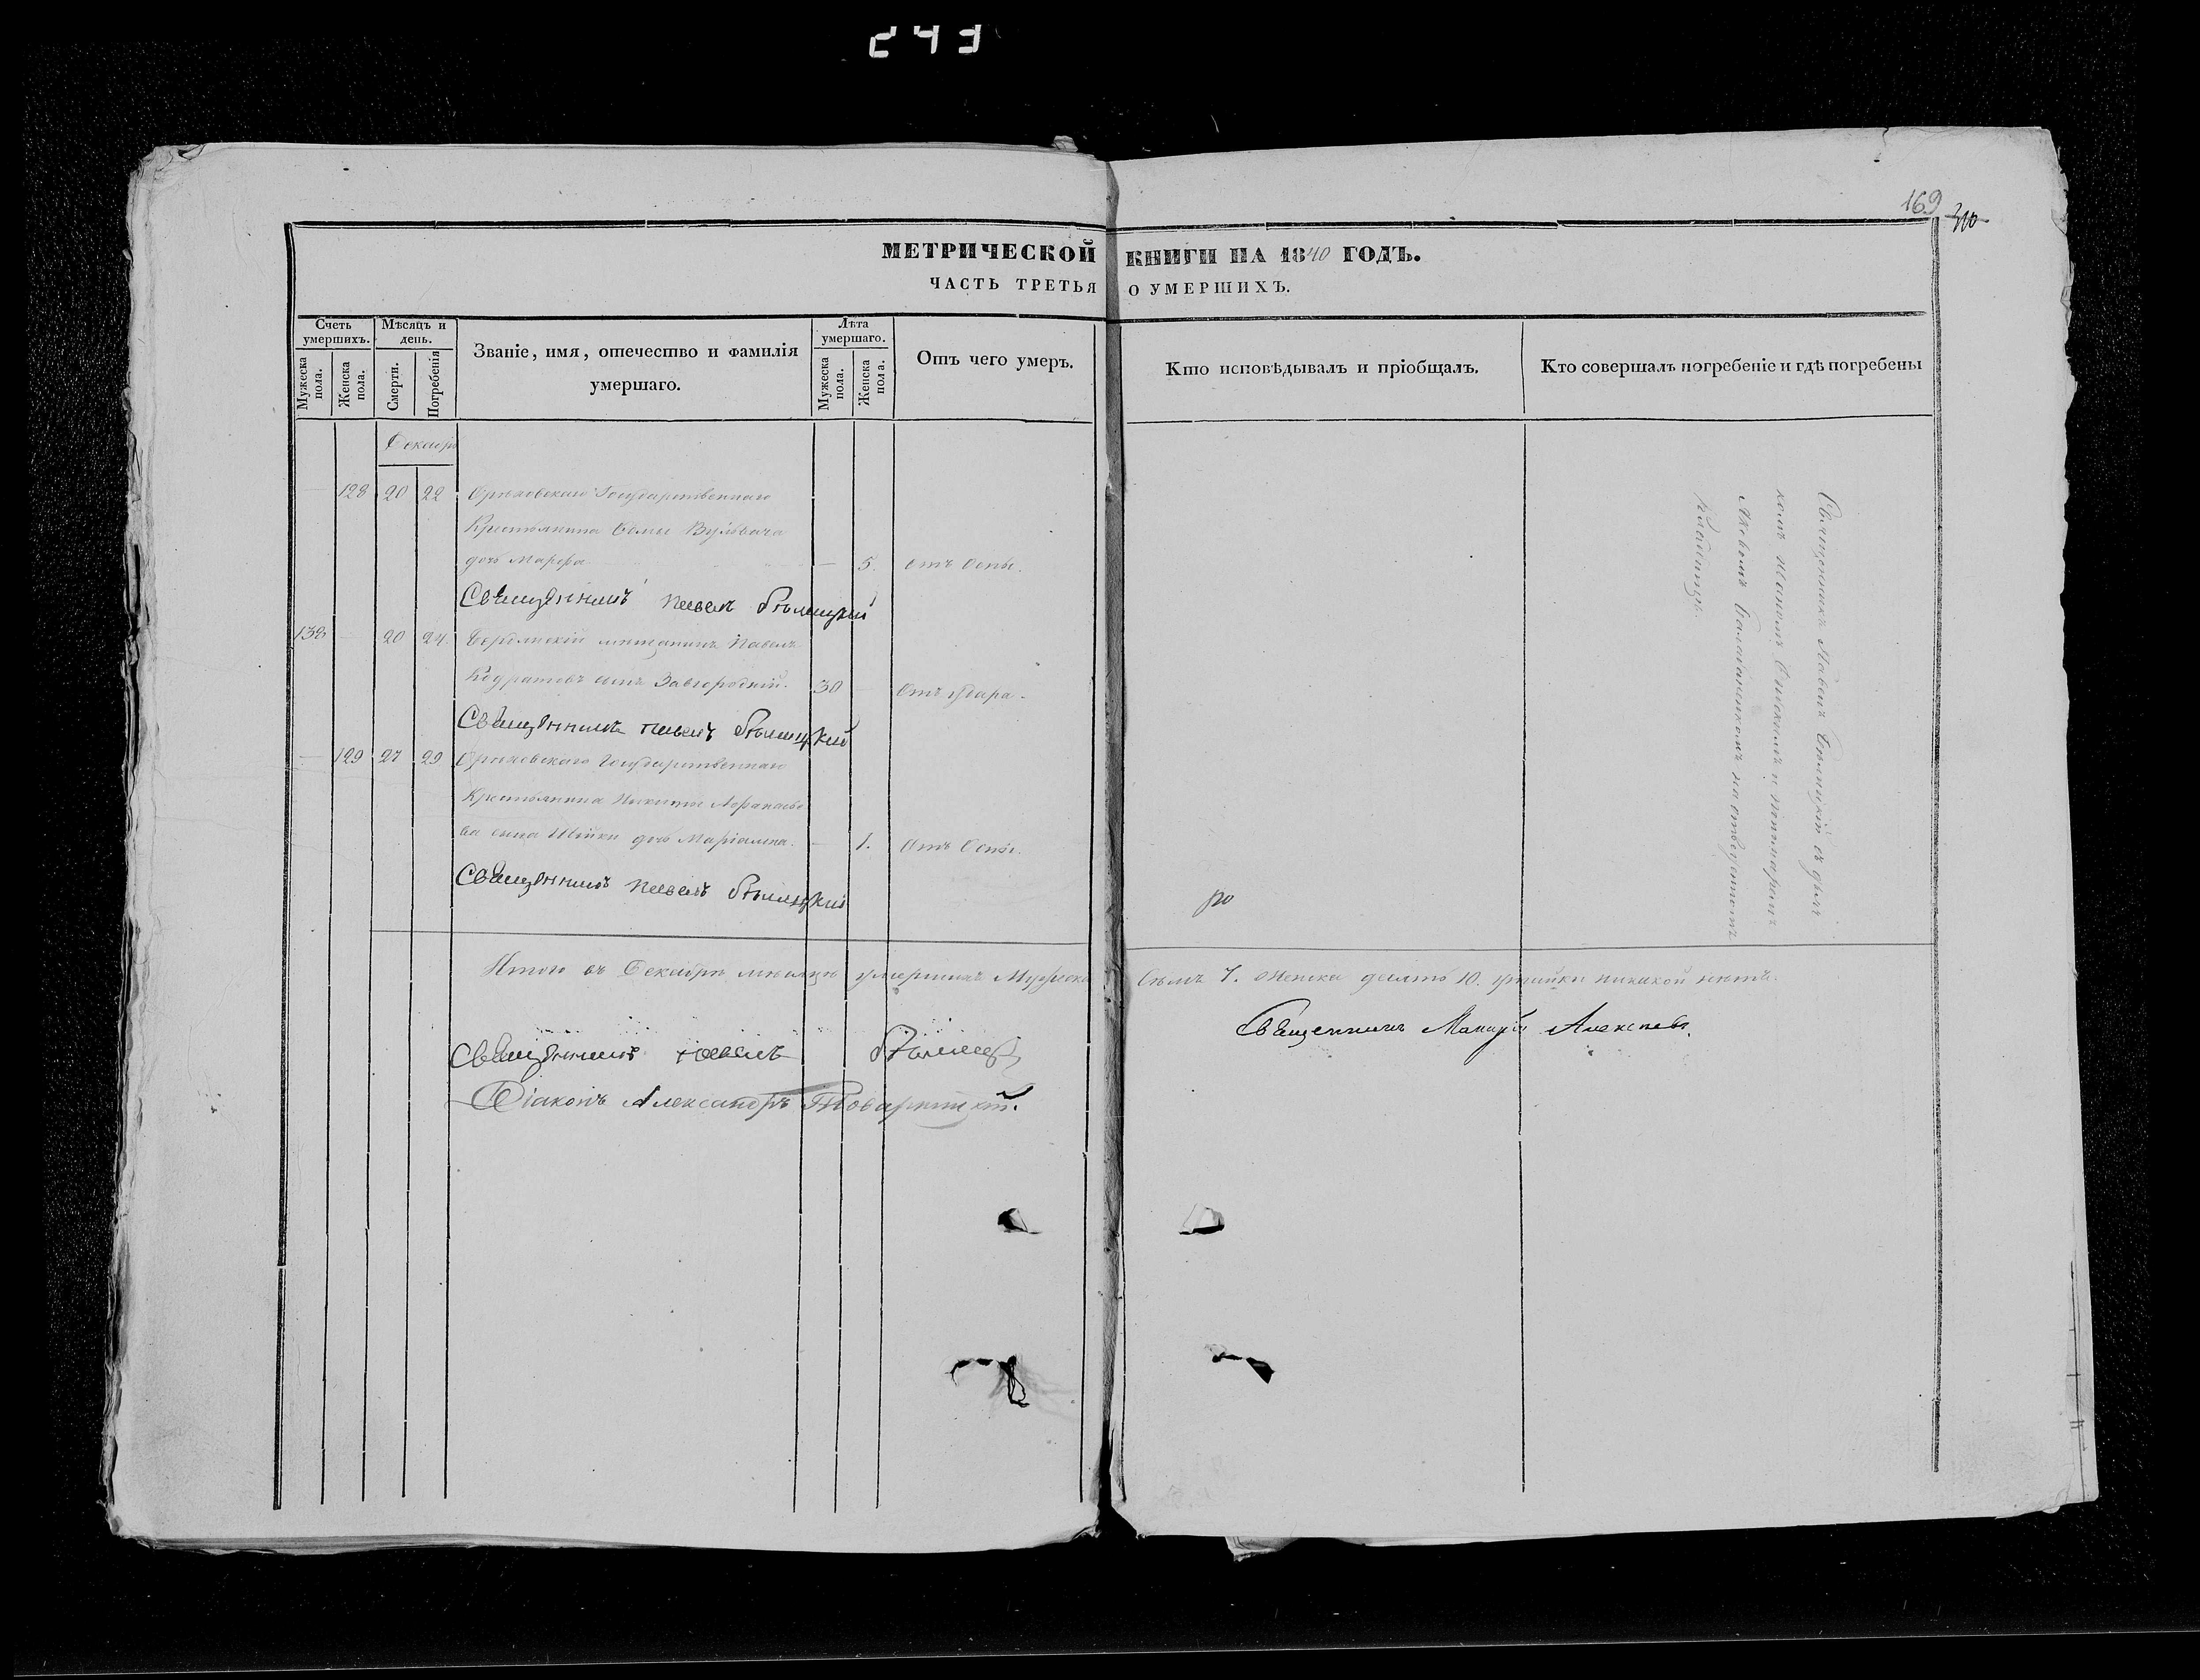 243
169
МЕТРИЧЕСКОЙ КНИГИ НА 1840 ГОДЪ.
ЧАСТЬ ТРЕТЬЯ О УМЕРШИХЪ.
Счетъ умершихъ.
Мужеска пола.
Женска пола.
Мѣсяцъ и день.
Смерти.
Погребенія
Званіе, имя, отечество и фамилія умершаго.
Лѣта умершаго.
Мужеска пола.
Женска пола.
Отъ чего умеръ.
Кто исповѣдывалъ и пріобщалъ.
Кто совершалъ погребеніе и гдѣ погребены
Декабрь
128 20 22 Орѣховскаго Государственнаго
Крестьянина
дочь Марфа — 5. отъ Оспы.
Священникъ Павелъ Бѣлицкій
138 20 24. Бердянскій мѣщанинъ Павелъ
Кодратовъ сынъ Завгородній. 30 Отъ удара.
Священникъ Павелъ Бѣлицкій
— 129 27 29 Орѣховскаго Государственнаго
Крестьянина Никиты
ва сына Швики дочь Маріамна. — 1. Отъ Оспы.
Священникъ Павелъ Бѣлицкій
Священникъ Павелъ Бѣлицкій съ дья
комъ и пономаремъ
Яковомъ на отведенномъ
Кладбищѣ.
Итого въ Декабрѣ мѣсяцѣ умершихъ Мужеска Семъ 7. Женска десять 10. утайки никакой нѣтъ.
Священникъ Павелъ Бѣлицкій
Священникъ Алексѣевъ.
Діаконъ Александръ